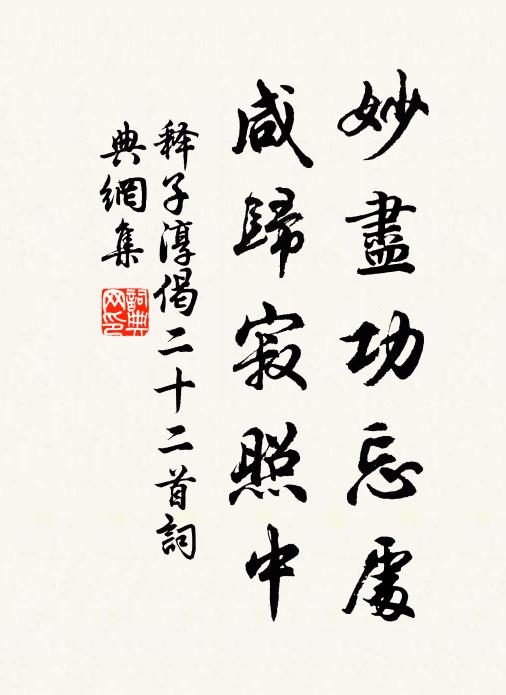 妙盡功忘處
咸歸寂照中
釋子淳偈二十二首詞
典網集
詞典
网印